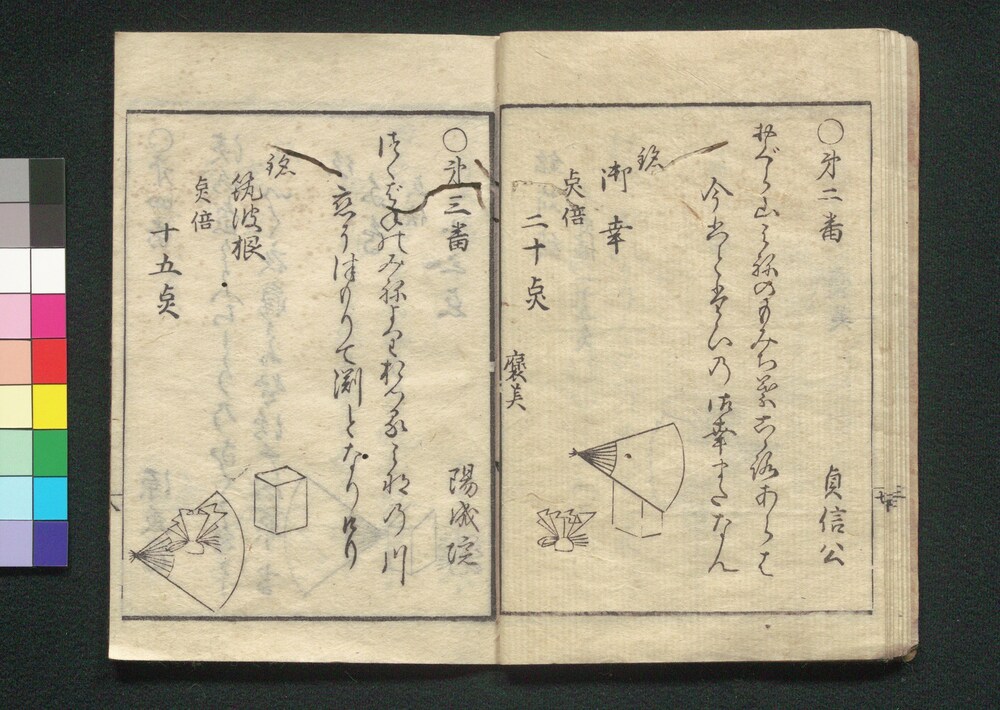 ○第二番 貞信公
おぐら山みねのもみぢ葉こゝろあらば
今ひとたびの御幸またなん
銘
御幸
点倍
二十点
褒美
○第三番 陽成院
つくばねのみねよりおつるみなの川
恋ぞつもりて渕となりけり
銘
筑波根
点倍
十五点